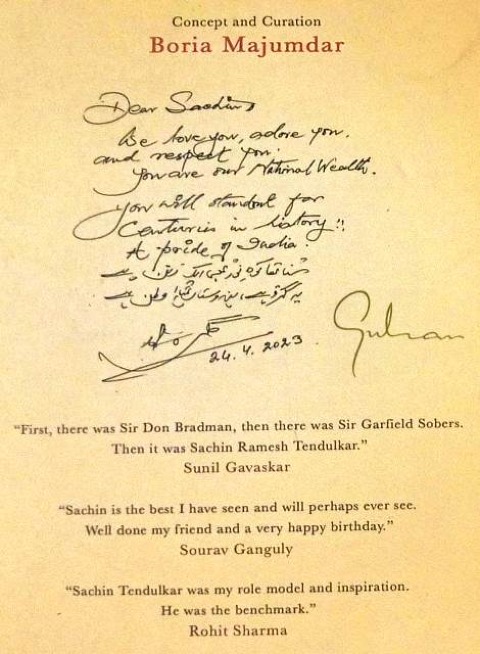 Concept and Curation
Boria Majumdar
Dear Sachin,
We love you, adore you.
and respect you.
you are our National Wealth.
you will standout for
Centuries in history!!
A pride of India.
ہے
یہ ہے وطن ہے
24.4.2023
Gulzar
“First, there was Sir Don Bradman, then there was Sir Garfield Sobers.
Then it was Sachin Ramesh Tendulkar.”
Sunil Gavaskar
“Sachin is the best I have seen and will perhaps ever see.
Well done my friend and a very happy birthday.”
Sourav Ganguly
“Sachin Tendulkar was my role model and inspiration.
He was the benchmark.”
Rohit Sharma